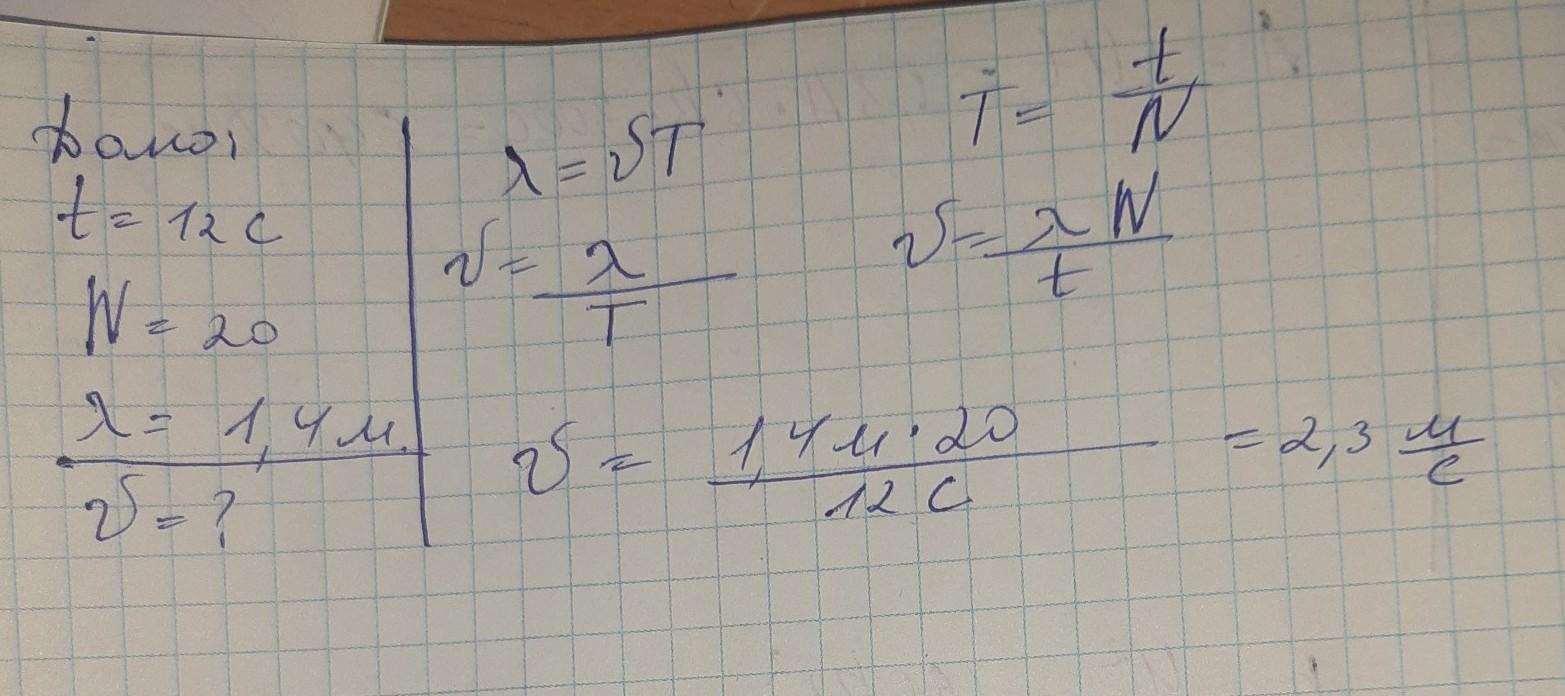 Дано:
t = 12 c
N = 20
λ = 1,4 м.
υ = ?
λ = υT
υ = λ/T
T = t/N
υ = λN/t
υ = 1,4 м · 20 / 12 c = 2,3 м/c